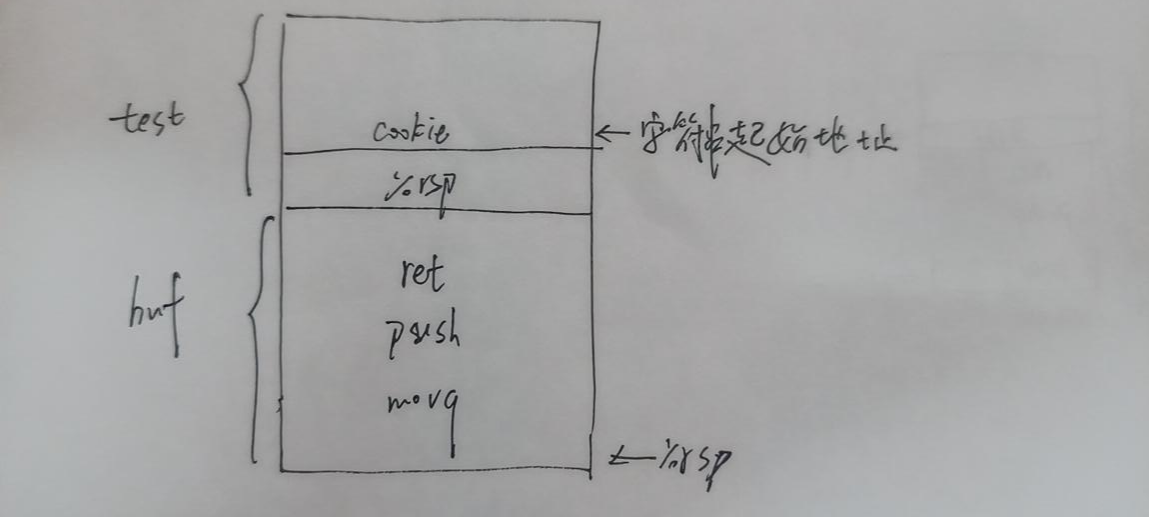 test
cookie
←字符串起始地址
%rsp
buf
ret
push
movq
←%rsp